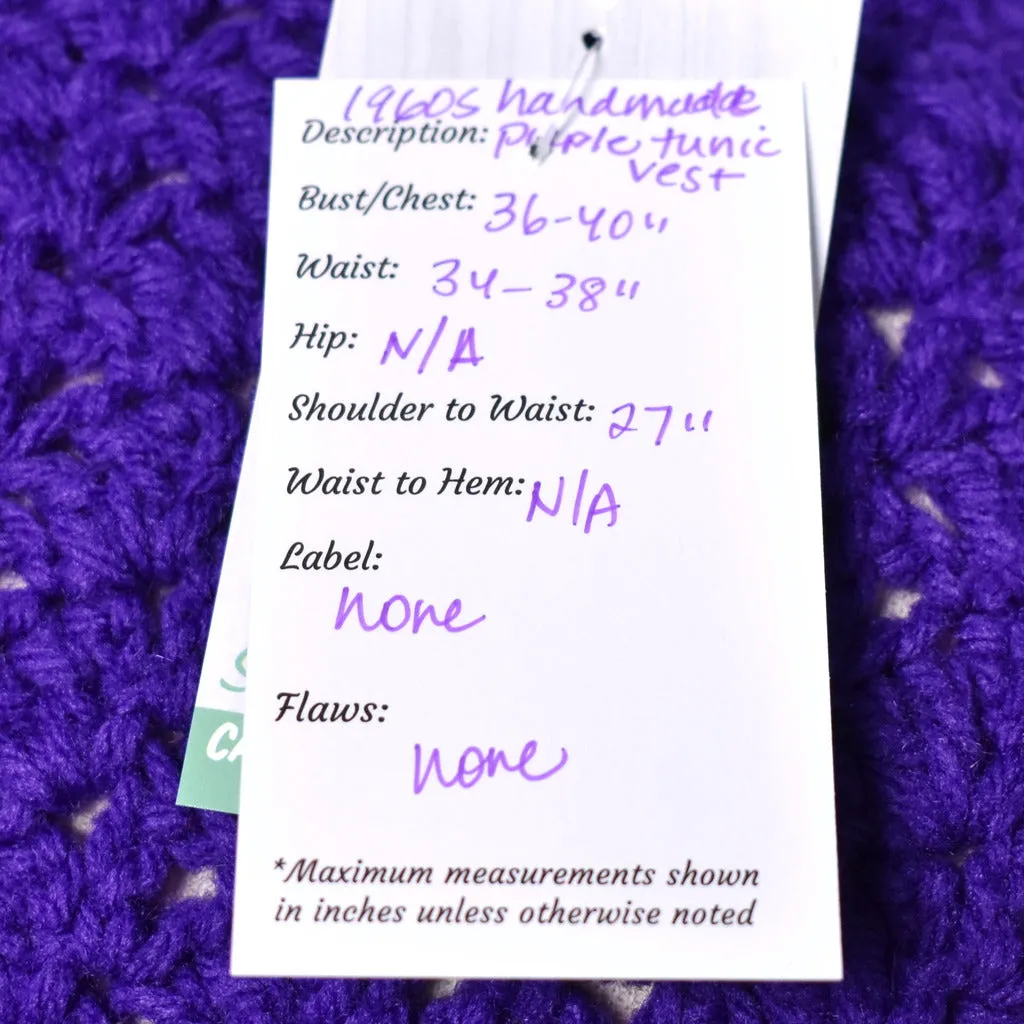 1960s handmade
Description: purple tunic
vest
Bust/Chest: 36-40"
Waist: 34-38"
Hip: N/A
Shoulder to Waist: 27"
Waist to Hem: N/A
Label:
none
Flaws:
none
*Maximum measurements shown
in inches unless otherwise noted